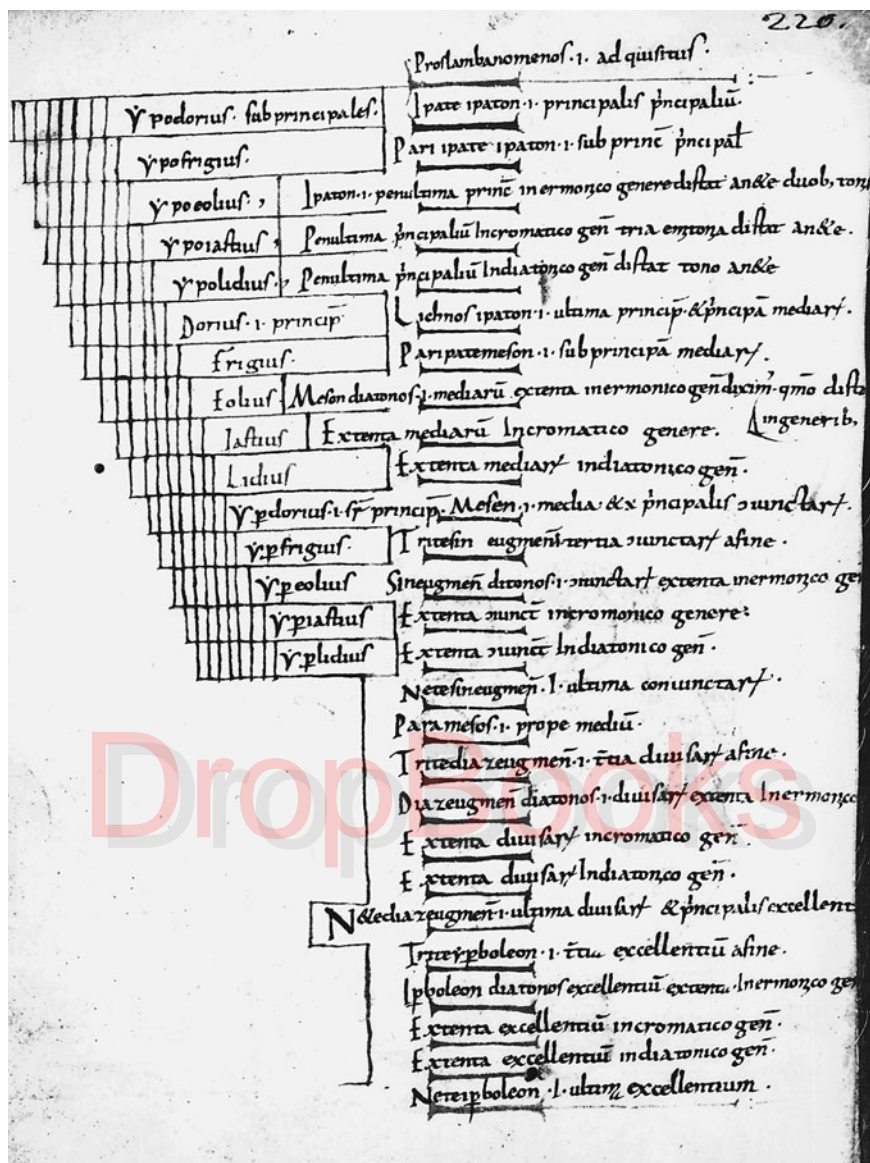 220.
Proslambanomenos · i · ad quisitus ·
ẏpodorius · subprincipales · Ipate ipaton · i · principalis p̄ncipaliū ·
ẏpofrigius · Pari ipate ipaton · i · sub princ̄ p̄ncipal̄
ẏpoeolius · , Ipaton · i · penultima princ̄ in ermonico genere distat an&e duob, tonis
ẏpoiastius , Penultima p̄ncipaliū Incromatico gen̄ tria emitonia distat an&e .
ẏpolidius · , Penultima p̄ncipaliū Indiatonico gen̄ distat tono an&e
Dorius · i · princip̄ Lichnos ipaton · i · ultima princip̄ · &p̄ncipā mediarꝝ .
frigius · Paripatemeson · i · sub principā mediarꝝ .
Eolius Meson diatonos · i · mediarū extenta in ermonico gen̄ diximꝰ · qm̄o dista
Iastius Extenta mediarū Incromatico genere . ingenerib,
Lidius Extenta mediarꝝ indiatonico gen̄ ·
ẏꝑdorius · i · sr̄ principā · Mesen · i · media &x p̄ncipalis ɔiunctarꝝ .
ẏꝑfrigius · Tritesin eugmen̄ · i · tertia ɔiunctarꝝ afine ·
ẏꝑeolius Sineugmen̄ ditonos · i · ɔiunctarꝝ extenta in ermonico gen
ẏꝑiastius Extenta ɔiunct̄ incromonico genere :
ẏꝑlidius Extenta ɔiunct̄ Indiatonico gen̄ ·
Netesineugmen̄ · I · ultima coniunctarꝝ .
Paramesos · i · prope mediū ·
Tritediazeugmen̄ · i · t̄tia diuisarꝝ afine ·
Diazeugmen̄ diatonos · i · diuisarꝝ extenta Inermonico
Extenta diuisarꝝ incromatico gen̄ ·
Extenta diuisarꝝ Indiatonico gen̄ ·
N&ediazeugmen̄ · i · ultima diuisarꝝ &p̄ncipalis excellent
Triteẏꝑboleon · i · t̄tia excellentiū afine ·
Iꝑboleon diatonos excellentiū extenta · Inermonico gen
Extenta excellentiū incromatico gen̄ ·
Extenta excellentiū indiatonico gen̄ ·
Neteiꝑboleon · I · ultima excellentium ·
DropBooks